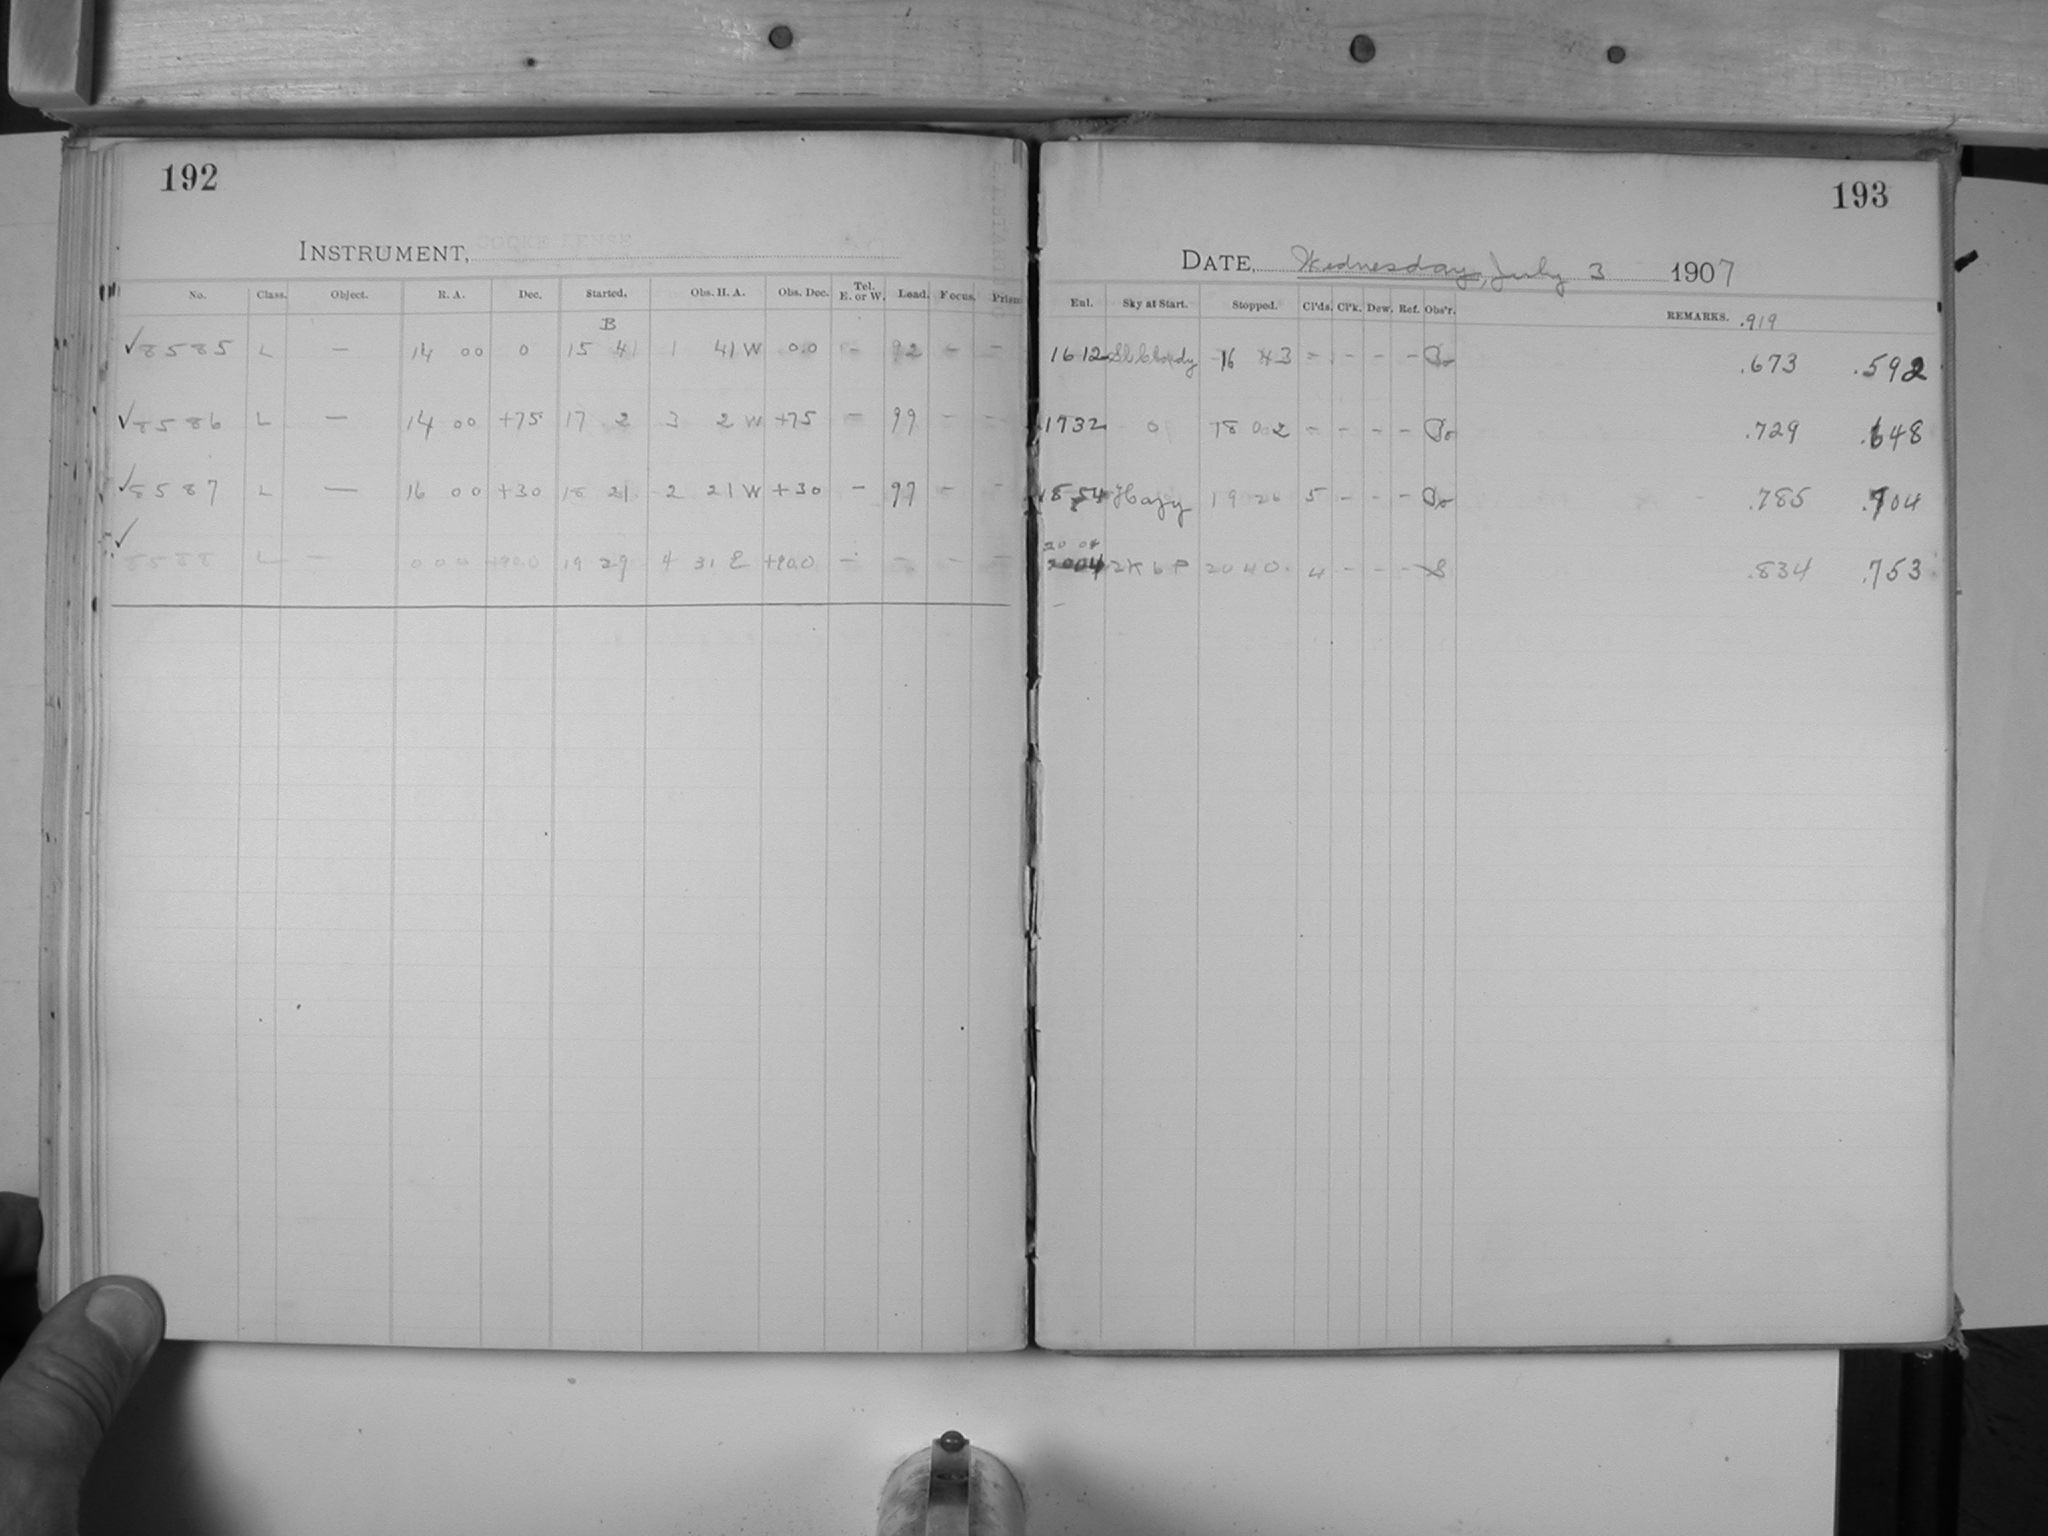 192
INSTRUMENT, COOKE LENSE
No. Class. Object. R. A. Dec. Started. Obs. H. A. Obs. Dec. Tel. E. or W. Load. Focus. Prism
B
✓8585 L — 14 00 0 15 41 1 41 W 0.0 — 92 — —
✓8586 L — 14 00 +75 17 2 3 2 W +75 — 99 — —
✓8587 L — 16 00 +30 18 21 2 21 W +30 — 99 — —
✓
8588 L — 0 00 +90.0 19 29 4 31 E +90.0 — — — —
193
DATE, Wednesday, July 3 1907
Enl. Sky at Start. Stopped. Cl'ds. Cl'k. Dew. Ref. Obs'r. REMARKS. .919
1612 Sl Cloudy 16 43 — — — — .673 .592
1732 0 18 02 — — — — .729 .648
1854 Hazy 19 26 5 — — — .785 .704
20 04
2004 2K6P 20 40 4 — — — S .834 .753